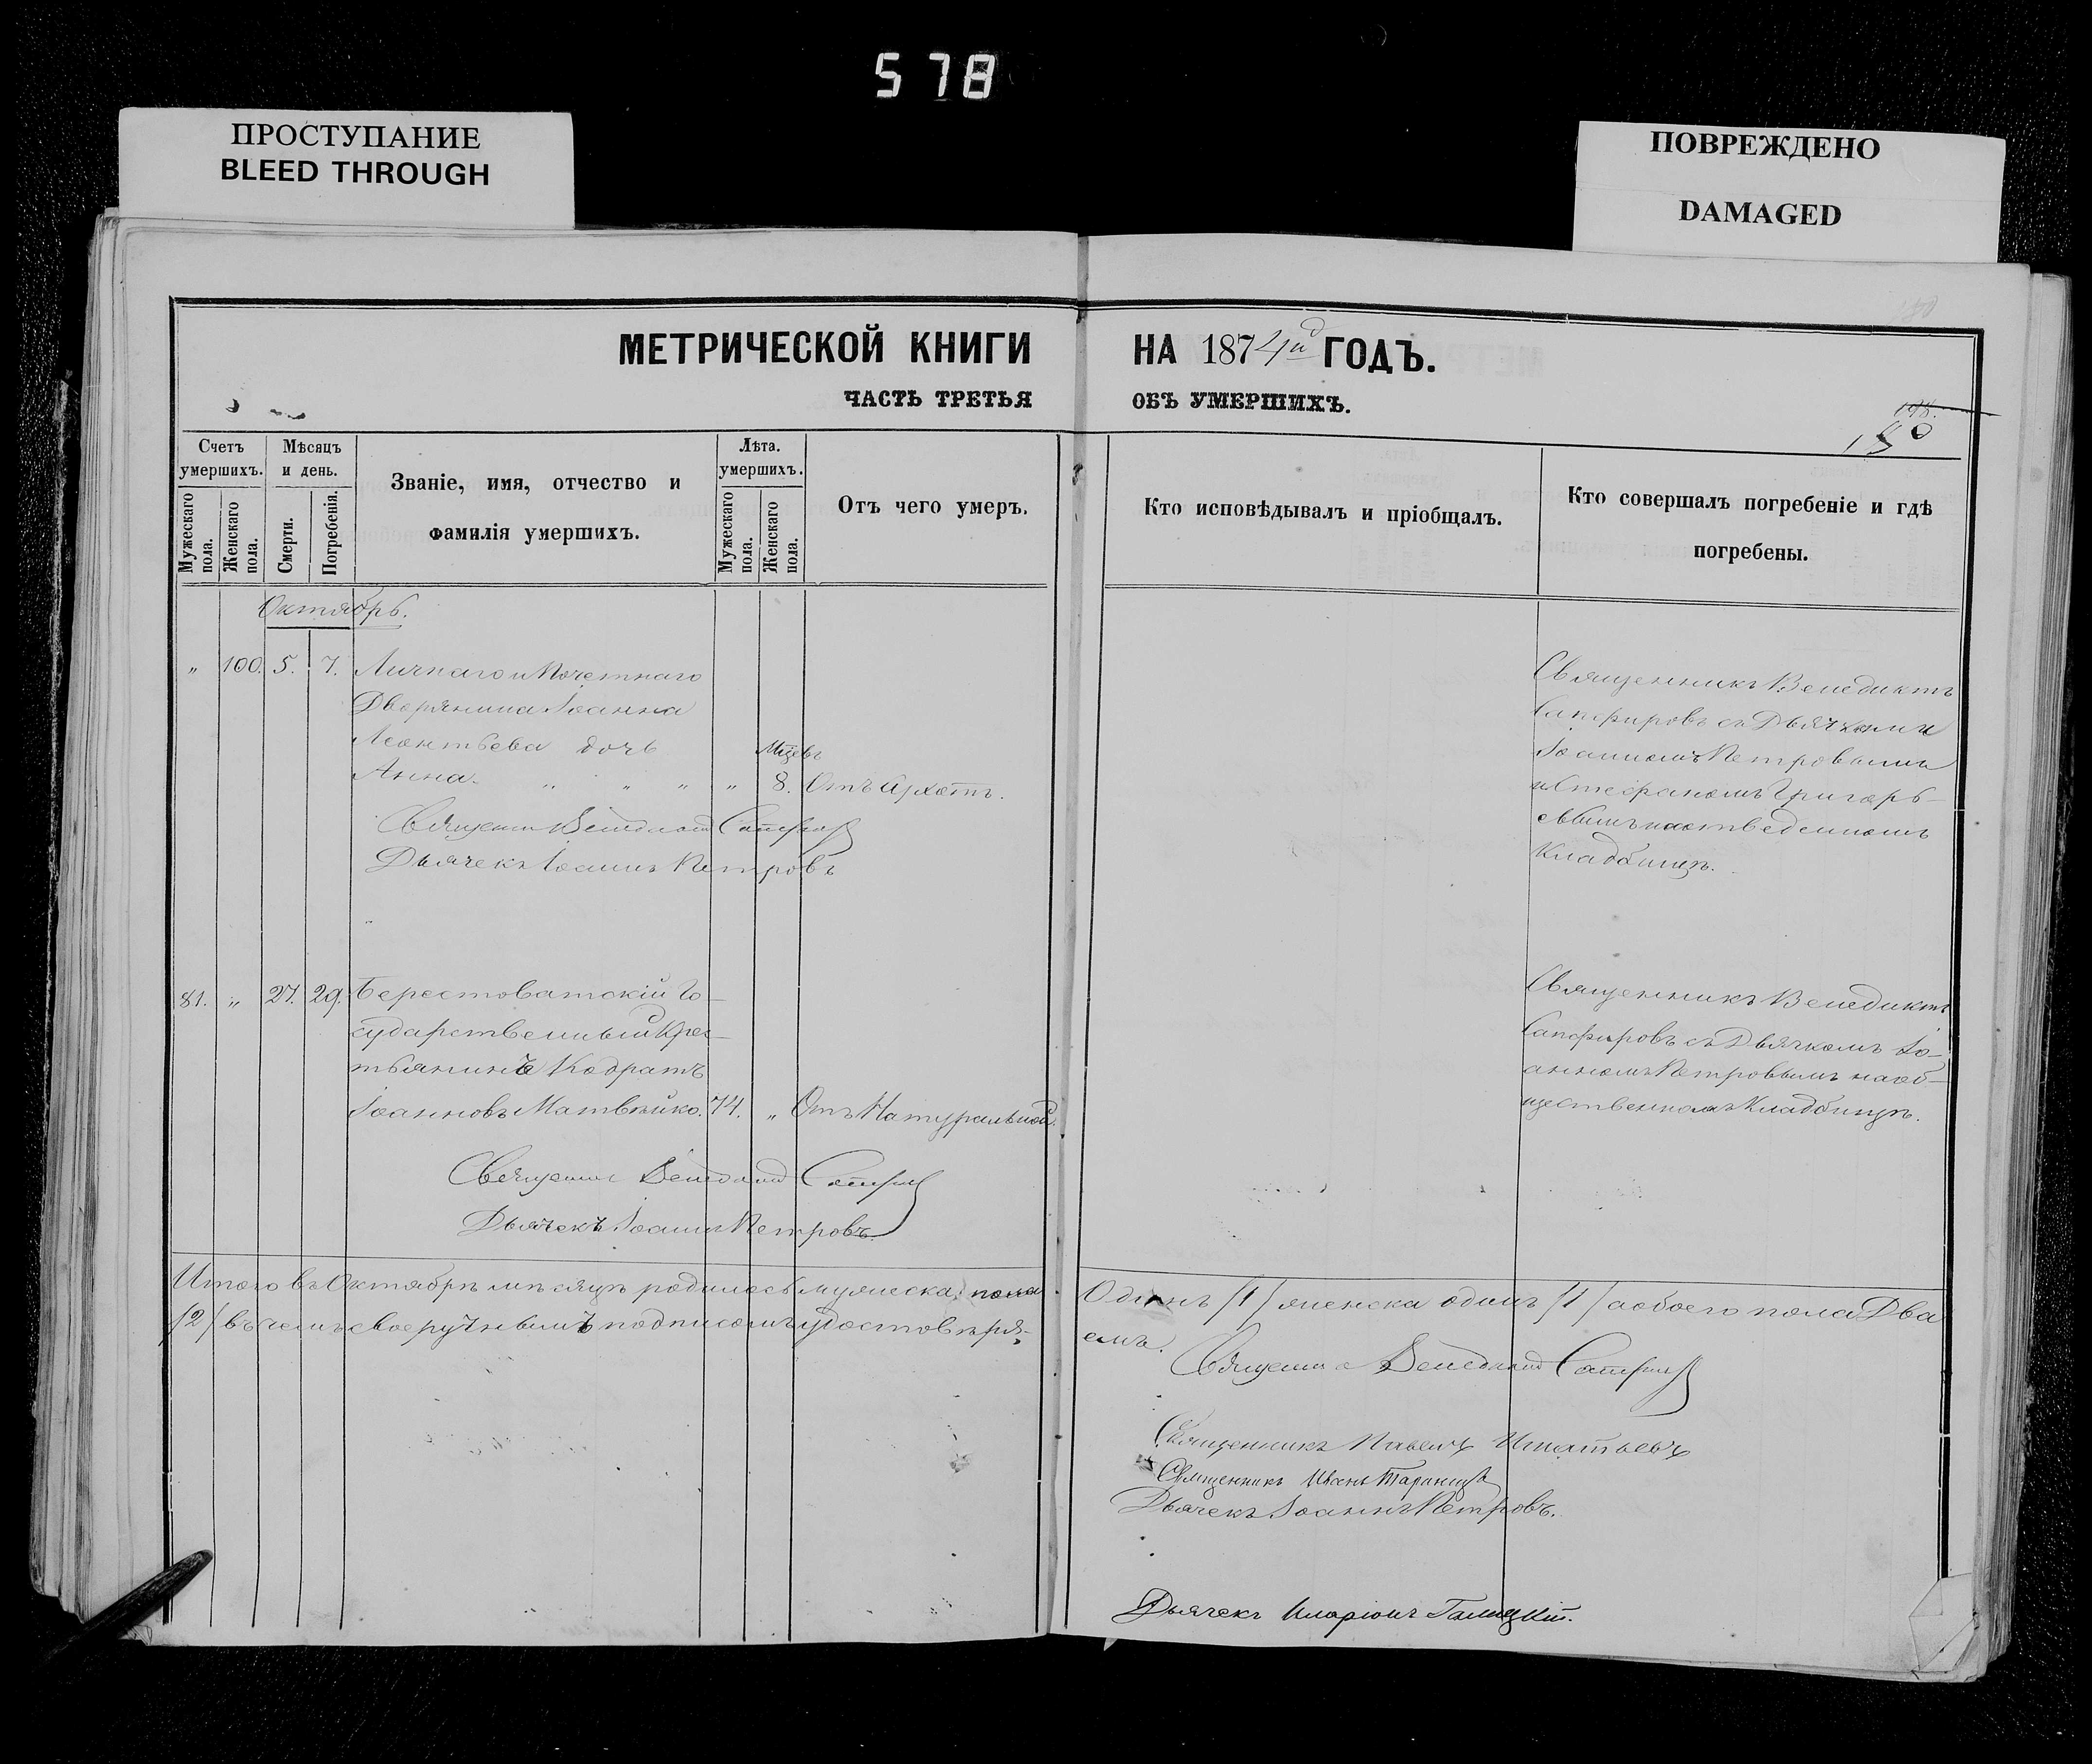 578
ПРОСТУПАНИЕ
BLEED THROUGH
ПОВРЕЖДЕНО
DAMAGED
МЕТРИЧЕСКОЙ КНИГИ НА 1874й ГОДЪ.
ЧАСТЬ ТРЕТЬЯ ОБЪ УМЕРШИХЪ.
198.
150
Счетъ умершихъ.
Мужескаго пола.
Женскаго пола.
Мѣсяцъ и день.
Смерти.
Погребенія.
Званіе, имя, отчество и
фамилія умершихъ.
Лѣта.
умершихъ.
Мужескаго пола.
Женскаго пола.
Отъ чего умеръ.
Кто исповѣдывалъ и пріобщалъ.
Кто совершалъ погребеніе и гдѣ
погребены.
Октябрь.
„ 100. 5. 7. Личнаго и Почетнаго
Дворянина Іоанна
Леонтьева дочь
Анна. „ „ „ „ Мцевъ 8. Отъ
Священникъ Венедиктъ Сапфировъ
Дьячекъ Іоаннъ Петровъ
Священникъ Венедиктъ
Сапфировъ съ Дьячками
Іоанномъ Петровымъ
и Стефаномъ Григорь-
евымъ на отведенномъ
Кладбищѣ.
81. „ 27. 29. Берестоватскій Го-
сударственный Крес-
тьянинъ Кодратъ
Іоанновъ Матвѣйко. 74. „ Отъ Натуральной.
Священникъ Венедиктъ Сапфировъ
Дьячекъ Іоаннъ Петровъ.
Священникъ Венедиктъ
Сапфировъ съ Дьячкомъ Іо-
анномъ Петровымъ на об-
щественномъ Кладбищѣ.
Итого въ Октябрѣ мѣсяцѣ родилось мужеска пола Одинъ /1/ женска одинъ /1/ а обоего пола Два
/2/ въ чемъ своеручнымъ подписомъ удостовѣря-
емъ.
Священникъ Венедиктъ Сапфировъ
Священникъ Павелъ Игнатьевъ
Священникъ Иванъ
Дьячекъ Іоаннъ Петровъ.
Дьячекъ Иларіонъ Галицкій.